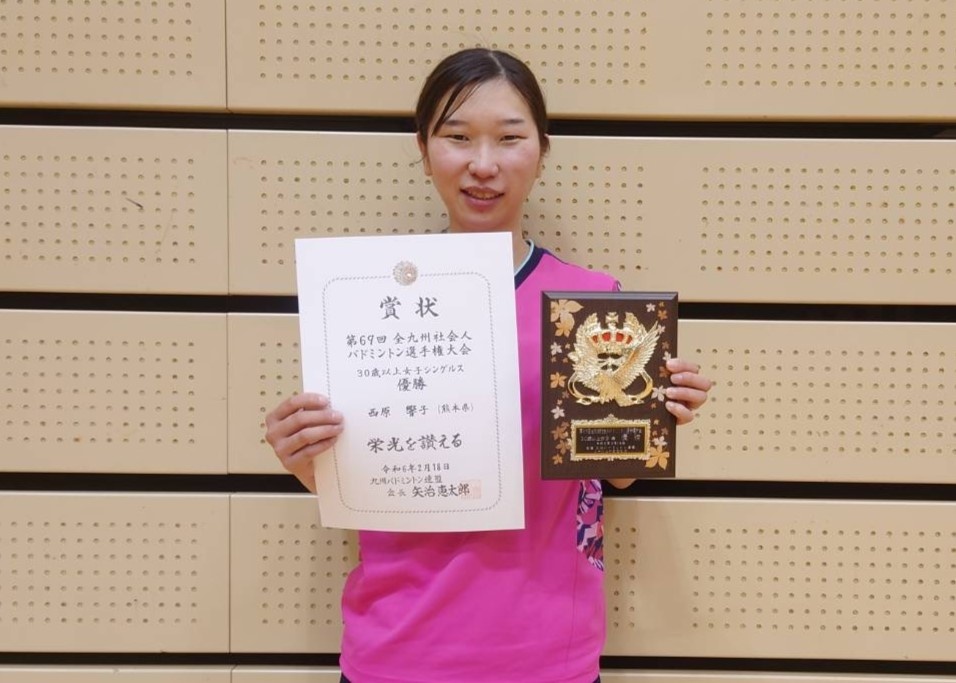 賞状
第67回 全九州社会人
バドミントン選手権大会
30歳以上女子シングルス
優勝
西原 響子 (熊本県)
栄光を讃える
令和6年2月18日
九州バドミントン連盟
会長 矢治恵太郎